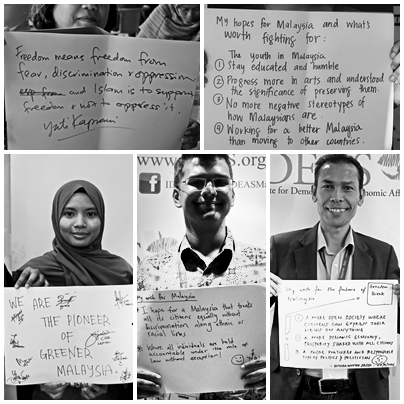 Freedom means freedom from
fear, discrimination & oppression
and Islam is to support
freedom & not to oppress it.
My hopes for Malaysia and what's
worth fighting for:
The youth in Malaysia
① Stay educated and humble
② Progress more in arts and understood
the significance of preserving them.
③ No more negative stereotypes of
how Malaysians are.
④ Working for a better Malaysia
than moving to other countries.
WE ARE
THE PIONEER
OF
GREENER
MALAYSIA.
www.
S.org
f
My wish for Malaysia
* I hope for a Malaysia that treats
all its citizens equally without
discrimination along ethnic or
racial lines.
* Where all individuals are held
accountable under the rule of
law without exception!
DEAS
te for Democ
omic Affa
My wish for the future of
Malaysia
① A MORE OPEN SOCIETY WHERE
CITIZENS CAN EXPRESS THEIR
VIEWS ON ANYTHING
② A MORE DYNAMIC ECONOMY,
PROSPERITY SHARED WITH ALL CITIZENS
③ A MORE MATURED AND RESPONSIBLE